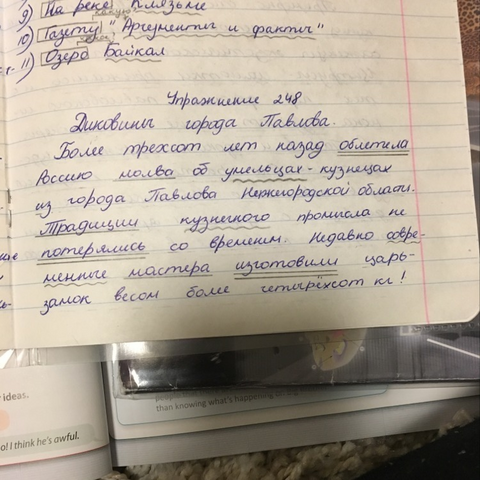 9) На реке Клязьме
какую?
10) Газету "Аргументы и факты"
11) Озеро Байкал
Упражнение 248
Диковины города Павлова.
Более трехсот лет назад облетела
Россию молва об умельцах-кузнецах
из города Павлова Нижегородской области.
Традиции кузнечного промысла не
потерялись со временем. Недавно совре-
менные мастера изготовили царь-
замок весом более четырёхсот кг!
y ideas.
o! I think he's awful.
than knowing what's happening